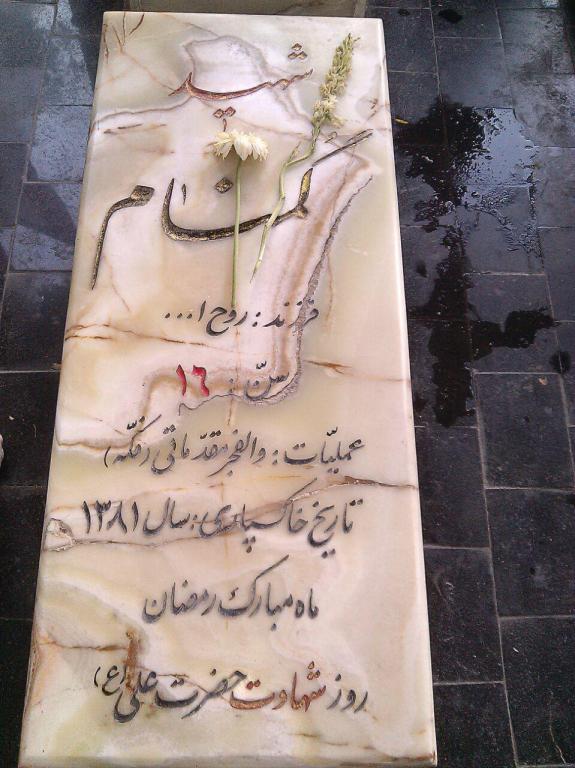 شهید
گمنام
فرزند: روح ا...
سنّ: ١٦
عملیّات: والفجر مقدّماتی (فکّه)
تاریخ خاکسپاری: سال ١٣٨١
ماه مبارک رمضان
روز شهادت حضرت علی (ع)